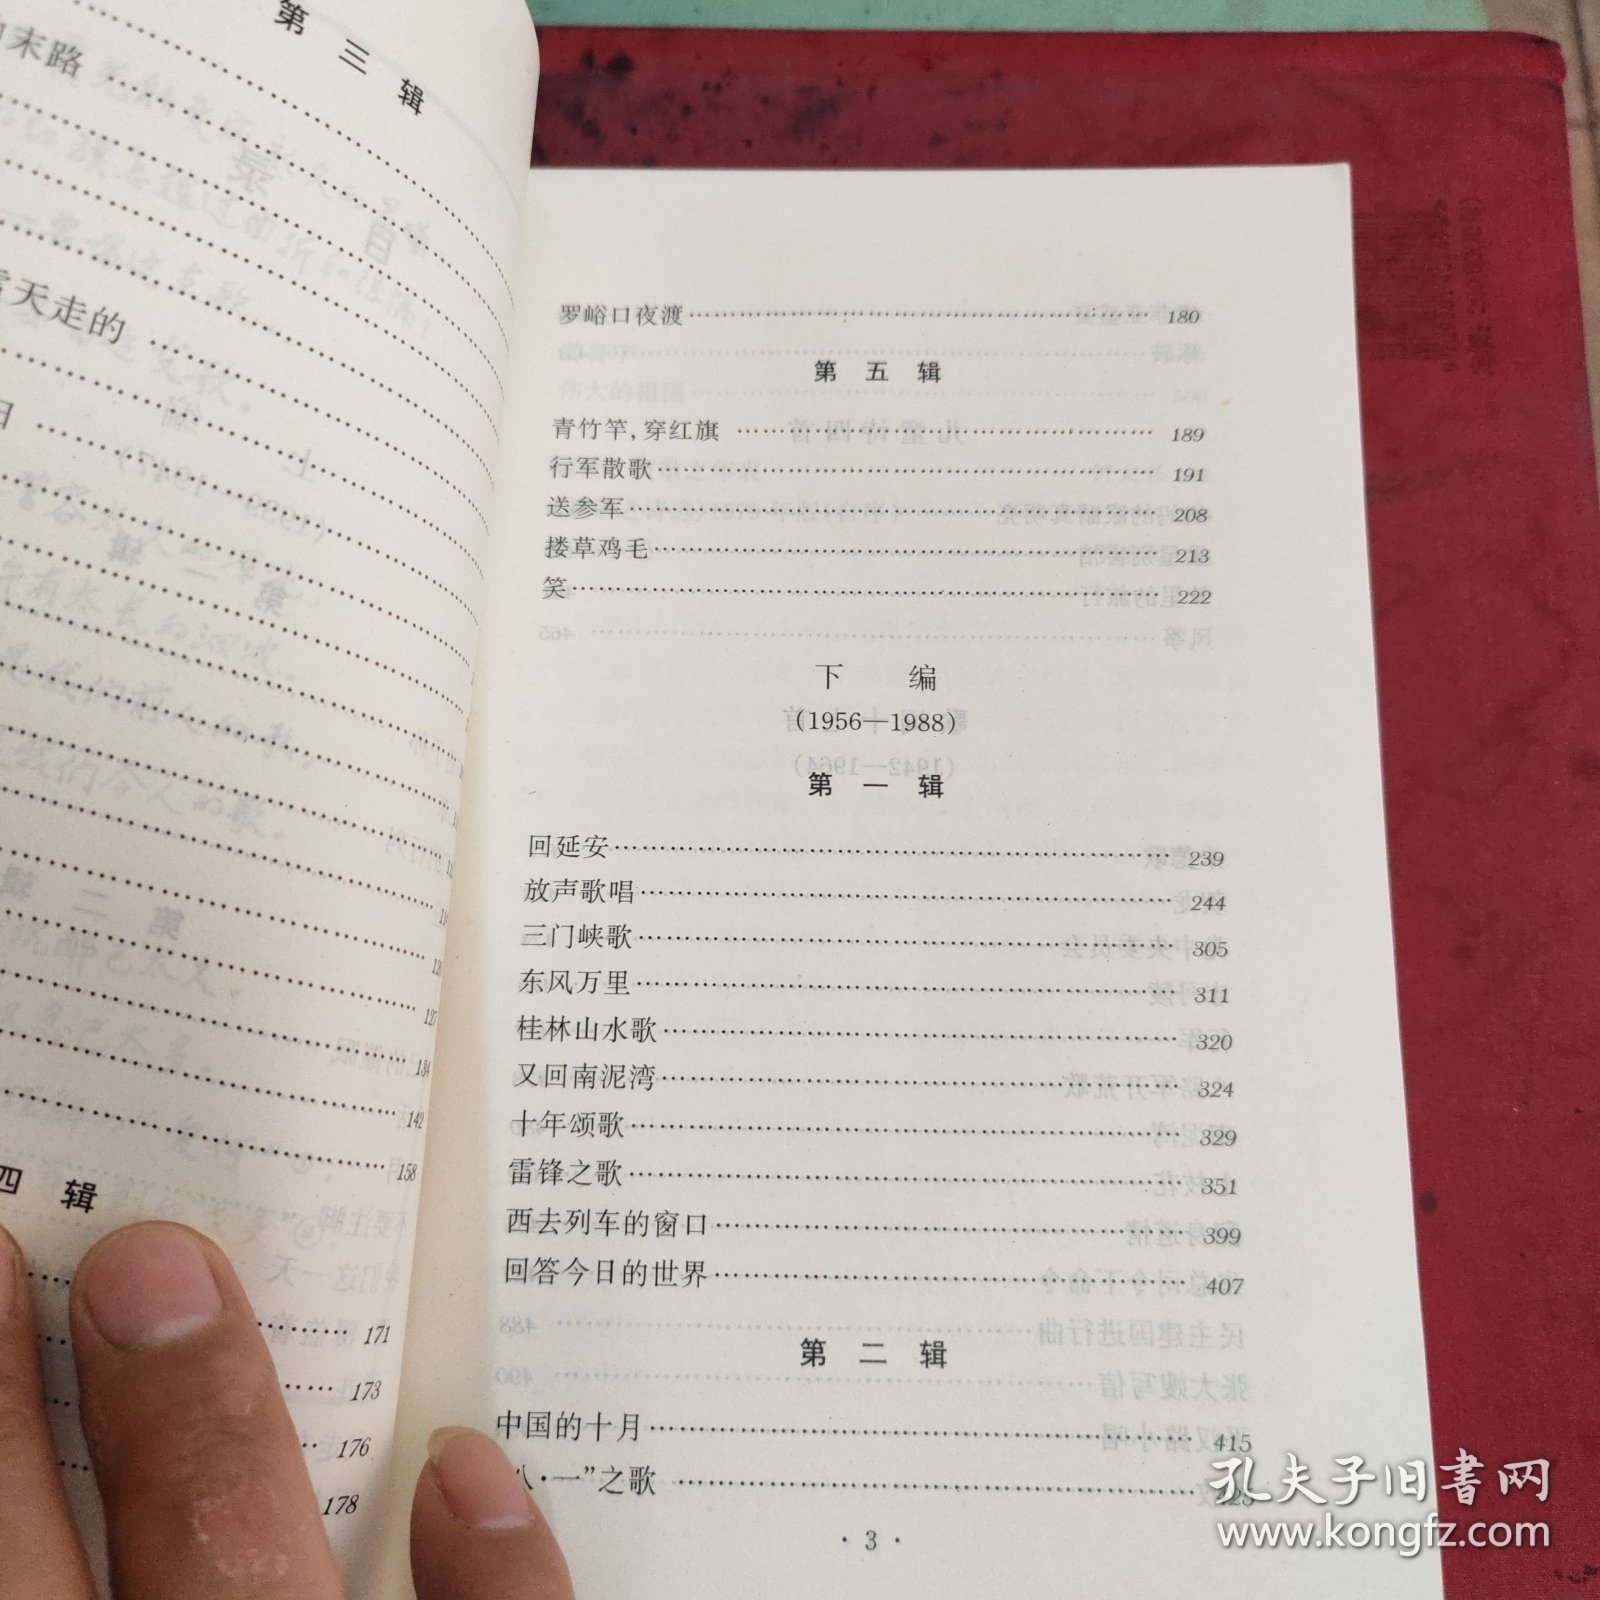 第三辑
末路
天走的
日
127
134
142
158
四辑
171
173
176
178
罗峪口夜渡……180
第 五 辑
青竹竿,穿红旗……189
行军散歌……191
送参军……208
搂草鸡毛……213
笑……222
下 编
(1956—1988)
第 一 辑
回延安……239
放声歌唱……244
三门峡歌……305
东风万里……311
桂林山水歌……320
又回南泥湾……324
十年颂歌……329
雷锋之歌……351
西去列车的窗口……399
回答今日的世界……407
第 二 辑
中国的十月……415
八·一”之歌……
·3·
孔夫子旧书网
www.kongfz.com